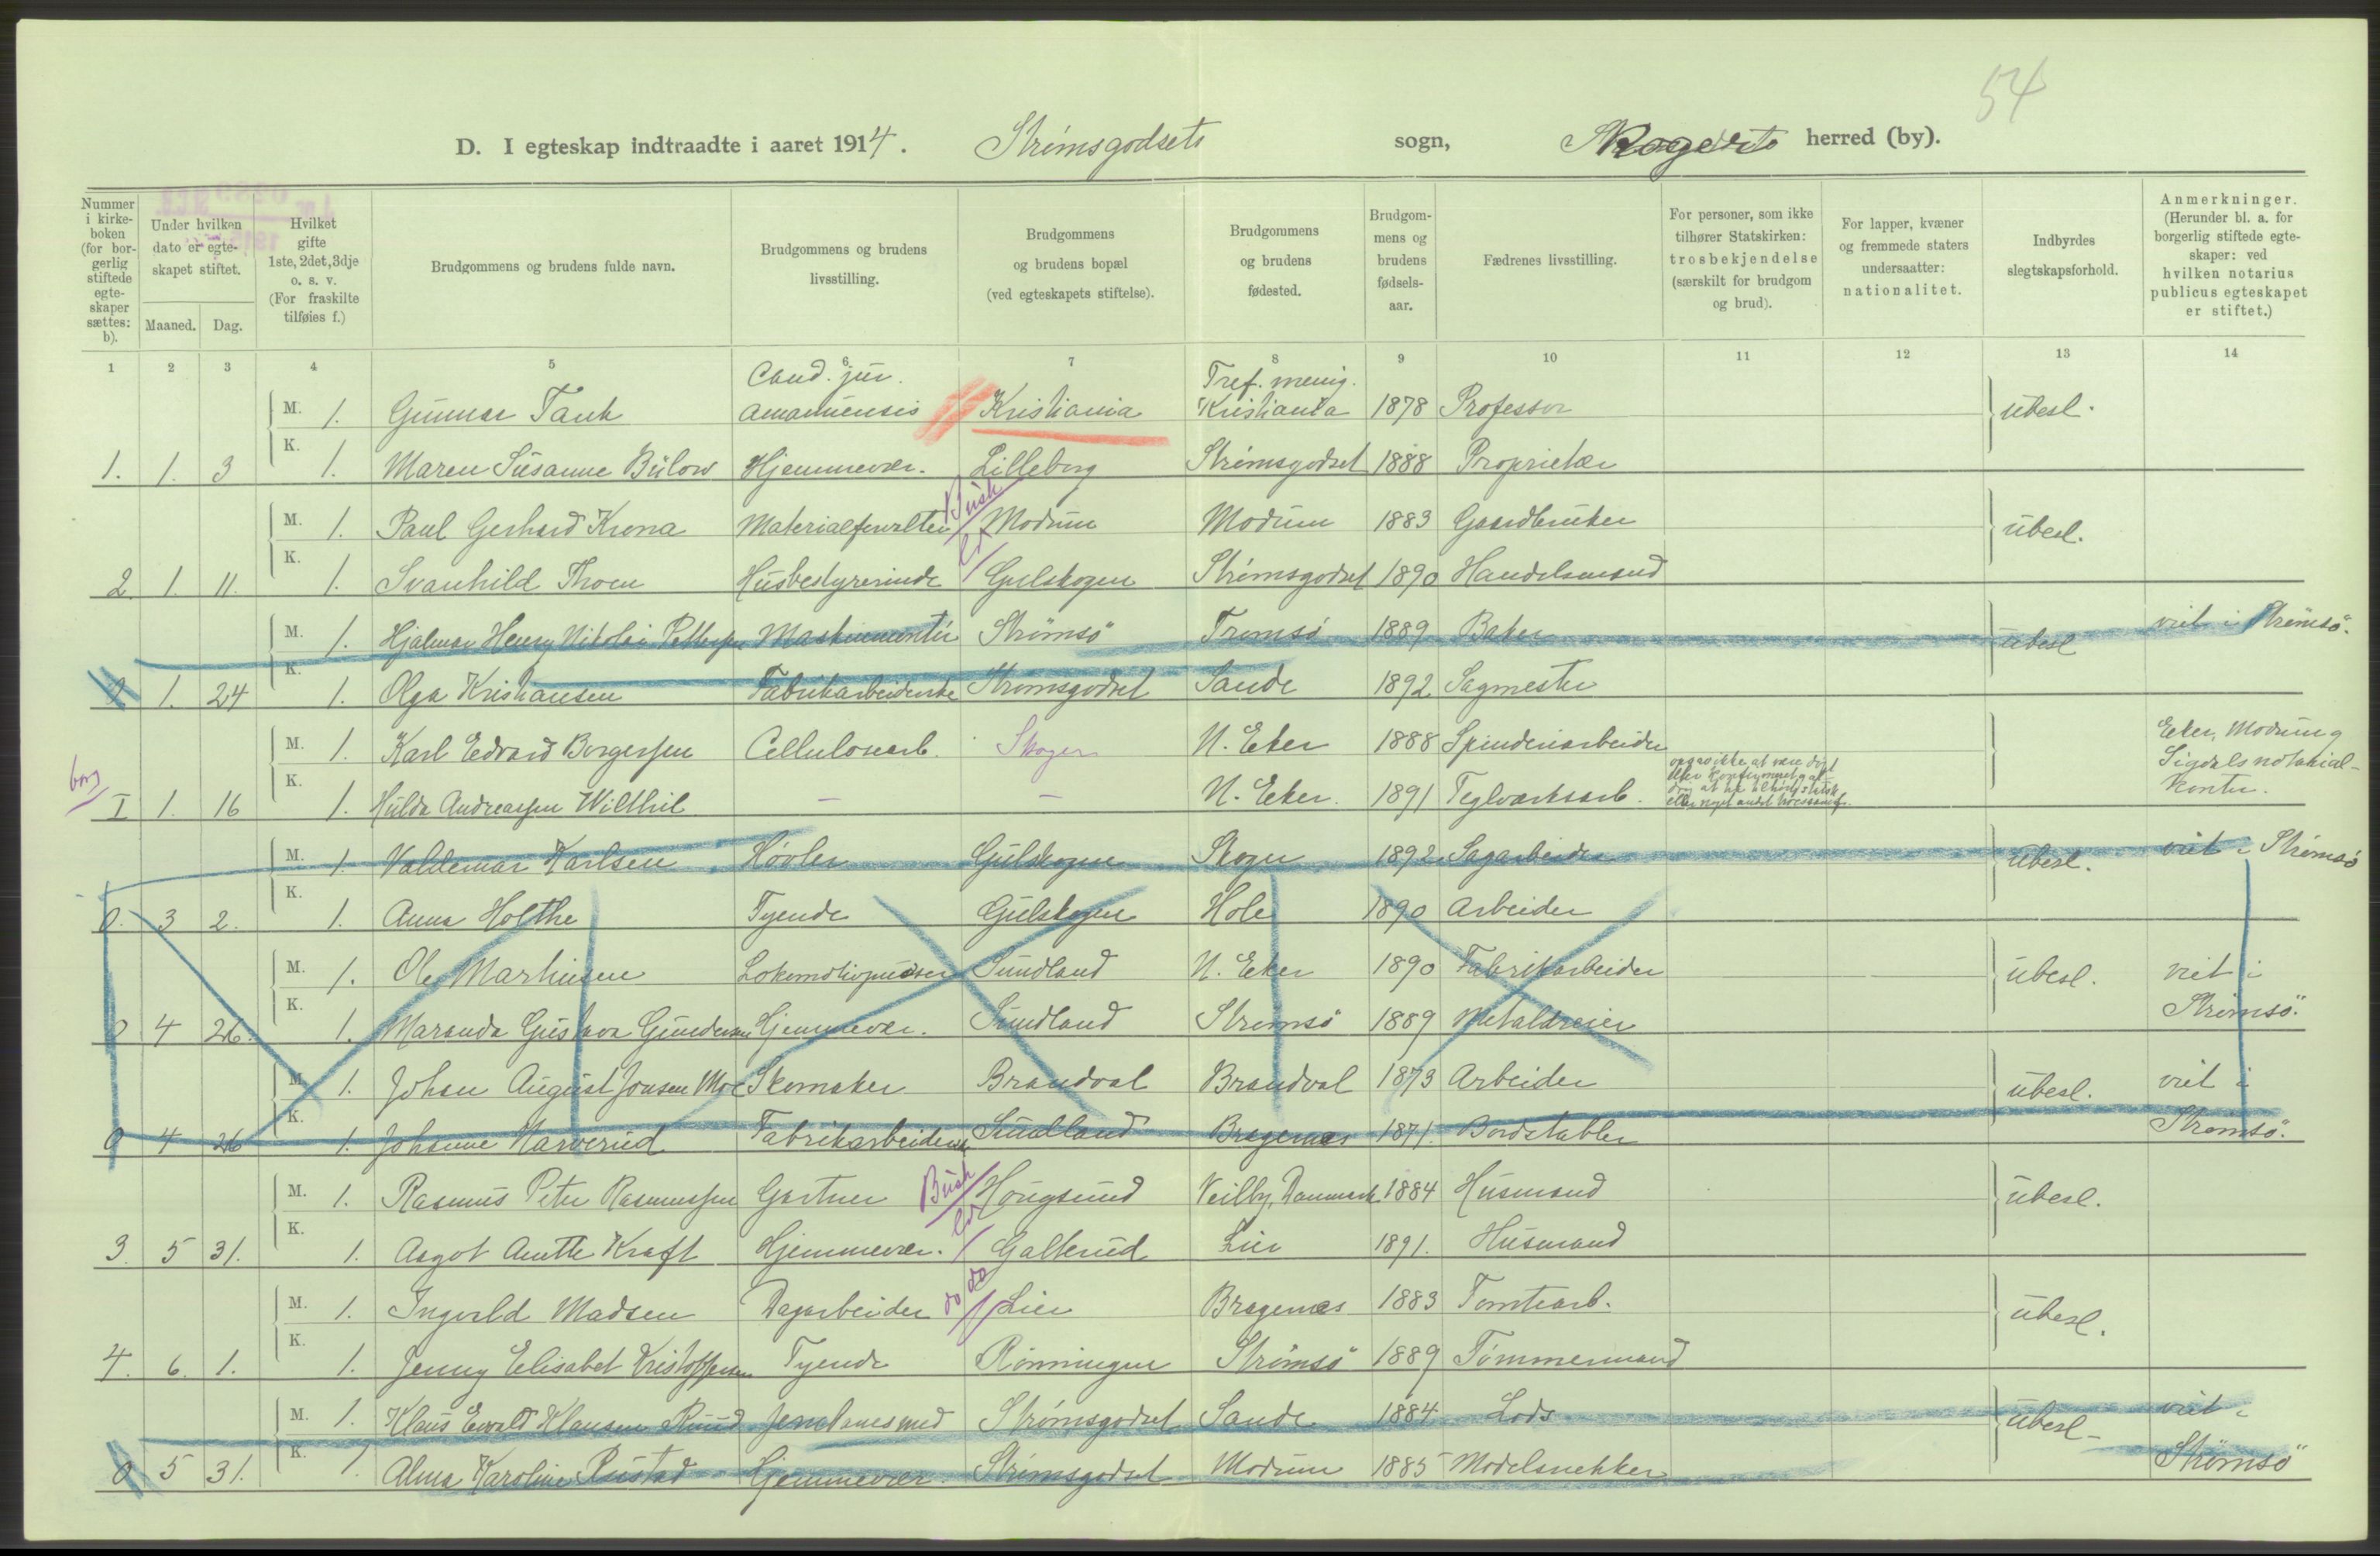 54
D. I egteskap indtraadte i aaret 1914. Strømsgodsets sogn, Skoger herred (by).
Nummer i kirkeboken (for borgerlig stiftede egteskaper sættes: b).
Under hvilken dato er egteskapet stiftet.
Maaned. Dag.
Hvilket gifte 1ste, 2det, 3dje o. s. v. (For fraskilte tilføies f.)
Brudgommens og brudens fulde navn.
Brudgommens og brudens livsstilling.
Brudgommens og brudens bopæl (ved egteskapets stiftelse).
Brudgommens og brudens fødested.
Brudgommens og brudens fødselsaar.
Fædrenes livsstilling.
For personer, som ikke tilhører Statskirken: trosbekjendelse (særskilt for brudgom og brud).
For lapper, kvæner og fremmede staters undersaatter: nationalitet.
Indbyrdes slegtskapsforhold.
Anmerkninger. (Herunder bl. a. for borgerlig stiftede egteskaper: ved hvilken notarius publicus egteskapet er stiftet.)
1 2 3 4 5 6 7 8 9 10 11 12 13 14
Cand. jur. Tref. menig.
M. 1. Gunnar Tank Amanuensis Kristiania Kristiania 1878 Professor ubesl.
K. 1. 1. 3 1. Maren Susanne Bülow Hjemmevær. Lilleborg Strømsgodset 1888 Proprietær
Busk
M. 1. Paul Gerhard Krona Materialforvalter Modum Modum 1883 Gaardbruker ubesl.
K. 2. 1. 11. 1. Svanhild Thoen Husbestyrerinde Gulskogen Strømsgodset 1890 Handelsmand
M. 1. Hjalmar Henry Nikolai Pettersen Maskinmontør Strømsö Tromsø 1889 Baker ubesl viet i Strømsö.
K. 0 1. 24 1. Olga Kristiansen Fabrikarbeiderske Strømsgodset Sande 1892 Sagmester
M. 1. Karl Edvard Borgersen Cellulosearb. Skoger N. Eker 1888 Spinderiarbeider Eker, Modum og
Sigdals notarial-
kontor.
borg
K. I 1. 16 1. Hulda Andreassen Wilthil — — N. Eker. 1891 Teglværksarb.
M. 1. Valdemar Karlsen Høvler Gulskogen Skoger 1892 Sagarbeider ubesl. viet i Strømsö
K. 0. 3 2. 1. Anna Holthe Tyende Gulskogen Hole 1890 Arbeider
M. 1. Ole Marthisen Lokomotivpudser Sundland N. Eker 1890 Fabrikarbeider ubesl. viet i
K. 0 4 26. 1. Maranda Gustava Gundersen Hjemmevær. Sundland Strømsö 1889 Metaldreier Strømsö.
M. 1. Johan August Jonsen Moe Skomaker Brandval Brandval 1873 Arbeider ubesl. viet i
K. 0 4 26 1. Johanne Narverud Fabrikarbeiderske Sundland Bragernæs 1871. Bordstabler Strømsö.
Busk
M. 1. Rasmus Peter Rasmussen Gartner Hougsund Veilby, Danmark 1884 Husmand ubesl.
K. 3. 5 31. 1. Aagot Anette Kraft Hjemmevær. Galterud Lier 1891. Husmand
do do
M. 1. Ingvald Madsen Dagarbeider Lier Bragernæs 1883 Tomtearb. ubesl.
K. 4. 6. 1. 1. Jenny Elisabet Kristoffersen Tyende Rønningen Strømsö 1889 Tømmermand
M. 1. Klaus Ewald Klausen Ruud Jernbanesmed Strømsgodset Sande 1884 Lods ubesl. viet i
K. 0 5 31. 1. Alma Karoline Rustad Hjemmevær. Strømsgodset Modum 1885 Modelsnekker Strømsö